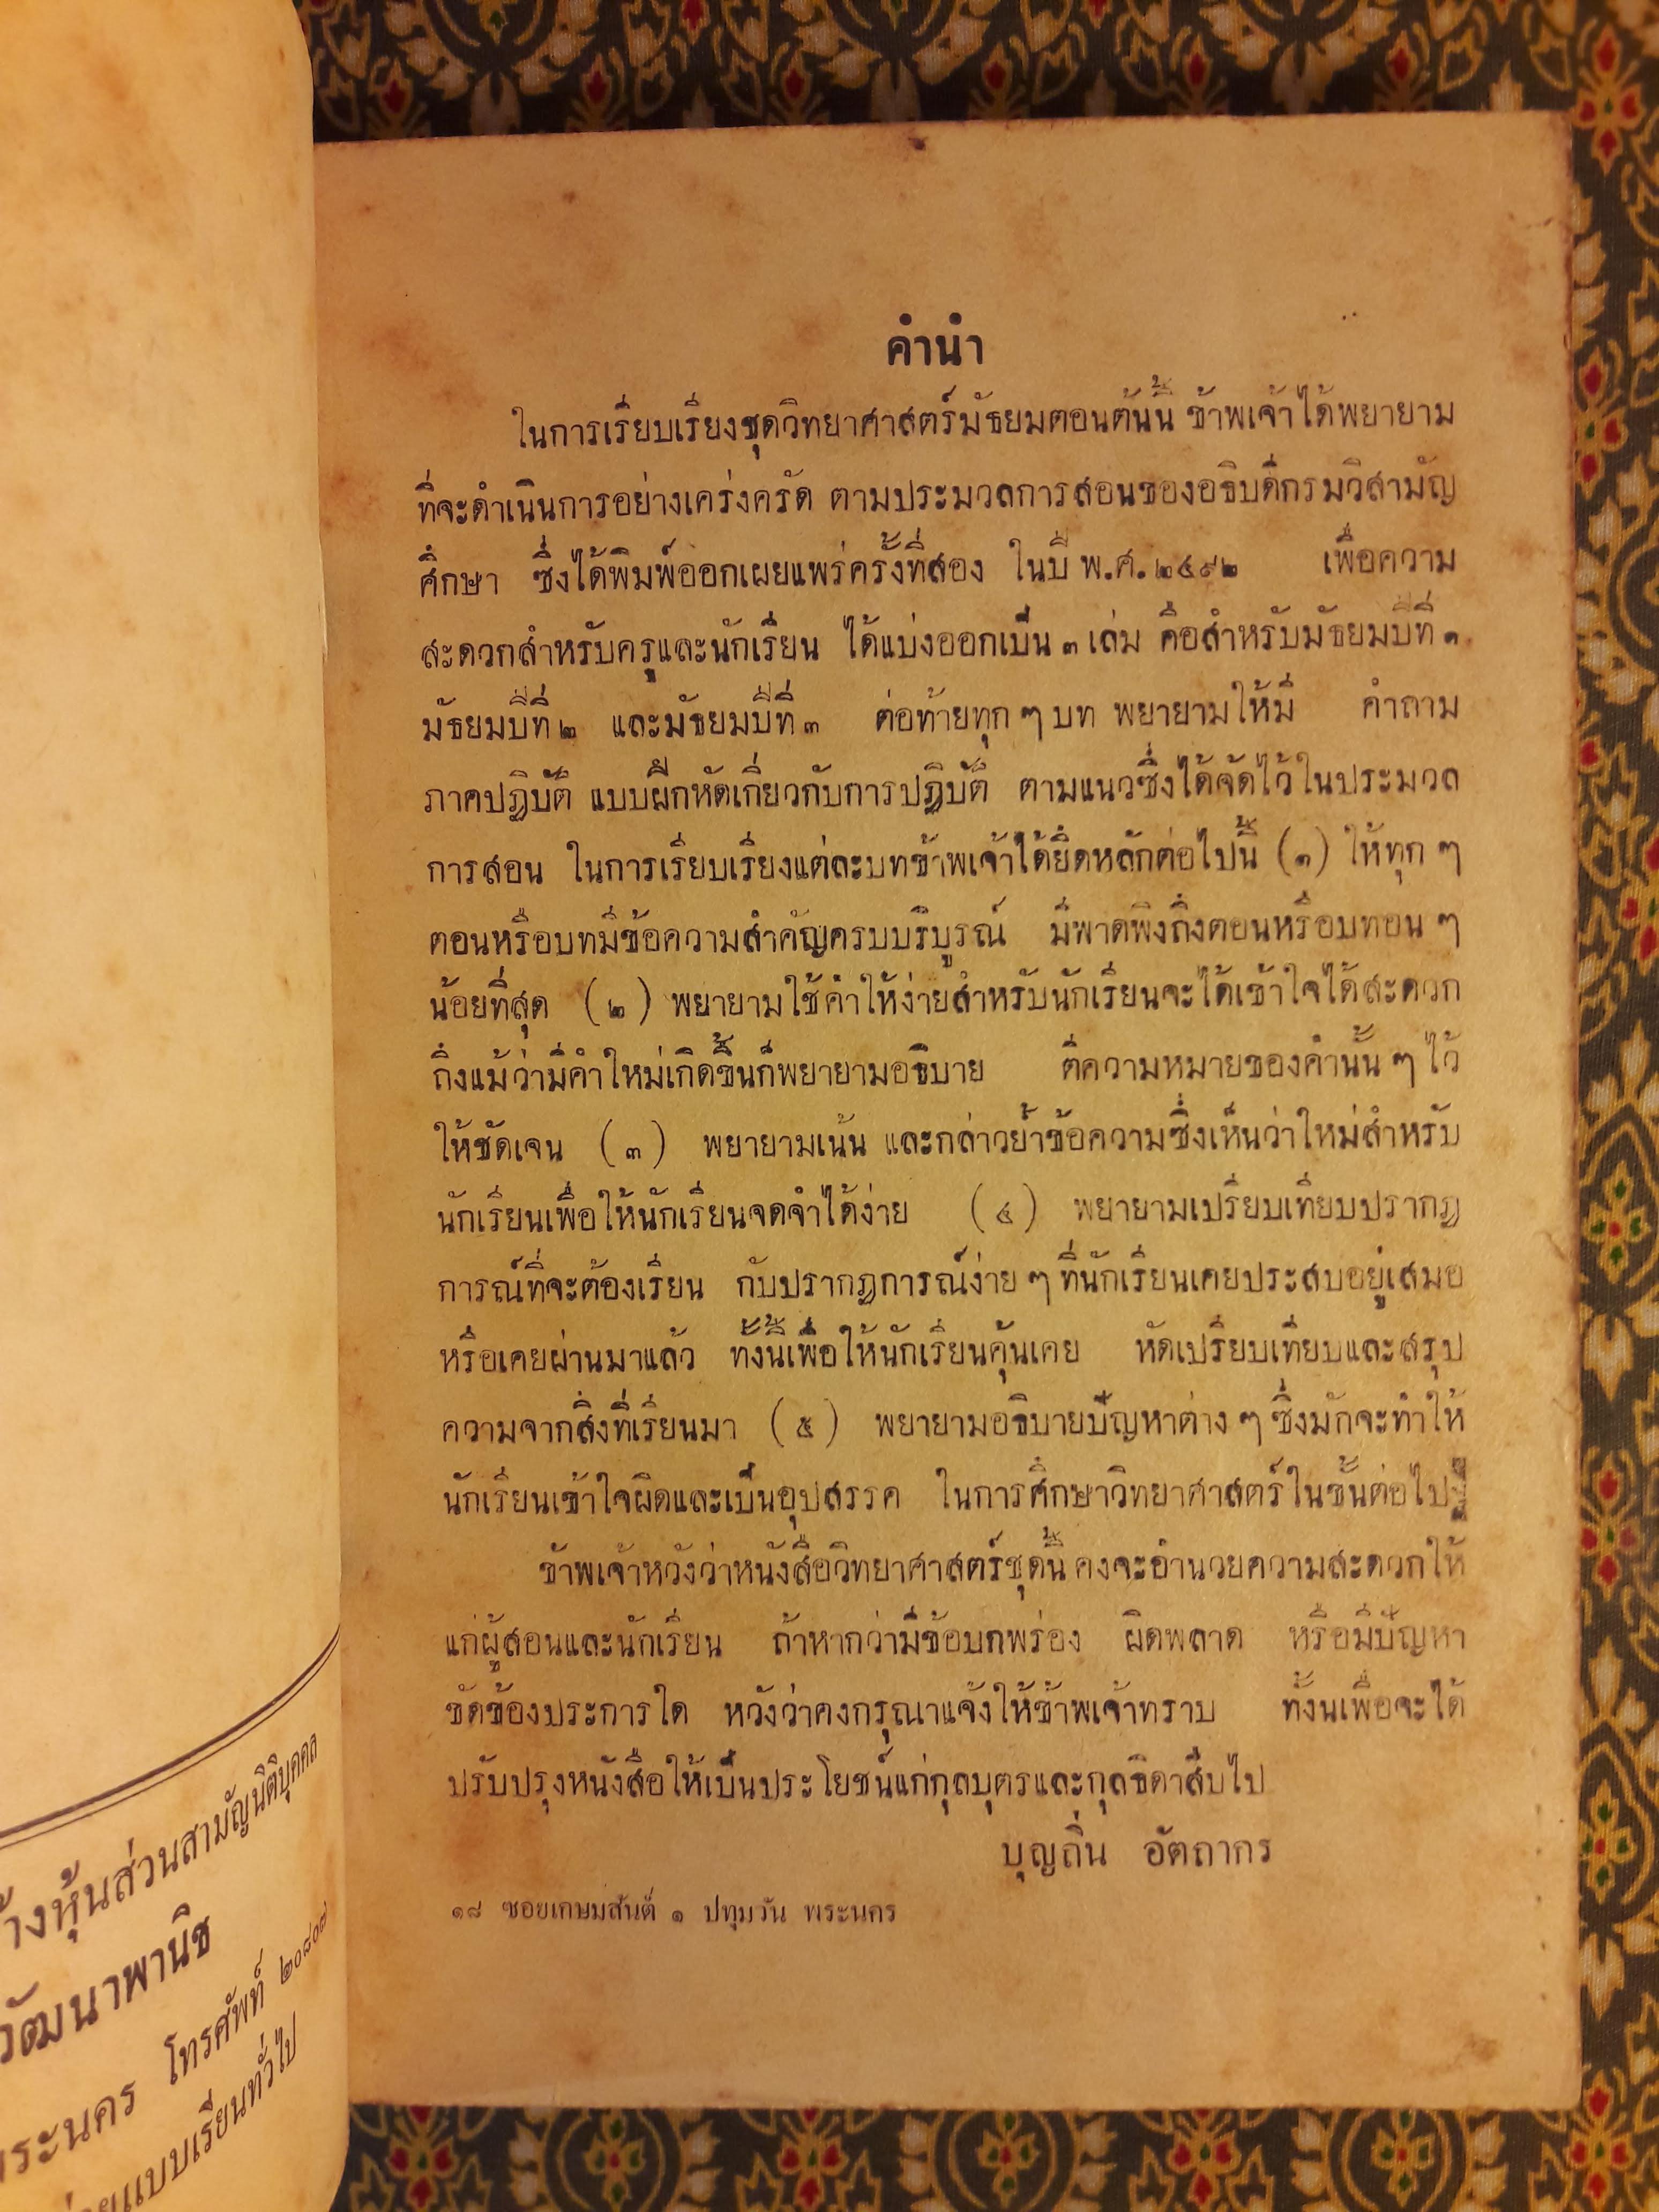 คำนำ
ในการเรียบเรียงชุดวิทยาศาสตร์มัธยมตอนต้นนี้ ข้าพเจ้าได้พยายาม
ที่จะดำเนินการอย่างเคร่งครัด ตามประมวลการสอนของอธิบดีกรมวิสามัญ
ศึกษา ซึ่งได้พิมพ์ออกเผยแพร่ครั้งที่สอง ในปี พ.ศ. ๒๔๙๒ เพื่อความ
สะดวกสำหรับครูและนักเรียน ได้แบ่งออกเป็น ๓ เล่ม คือสำหรับมัธยมปีที่ ๑
มัธยมปีที่ ๒ และมัธยมปีที่ ๓ ต่อท้ายทุก ๆ บท พยายามให้มี คำถาม
ภาคปฏิบัติ แบบฝึกหัดเกี่ยวกับการปฏิบัติ ตามแนวซึ่งได้จัดไว้ในประมวล
การสอน ในการเรียบเรียงแต่ละบทข้าพเจ้าได้ยึดหลักต่อไปนี้ (๑) ให้ทุก ๆ
ตอนหรือบทมีข้อความสำคัญครบบริบูรณ์ มีพาดพิงถึงตอนหรือบทอื่น ๆ
น้อยที่สุด (๒) พยายามใช้คำให้ง่ายสำหรับนักเรียนจะได้เข้าใจได้สะดวก
ถึงแม้ว่ามีคำใหม่เกิดขึ้นก็พยายามอธิบาย ตีความหมายของคำนั้น ๆ ไว้
ให้ชัดเจน (๓) พยายามเน้น และกล่าวย้ำข้อความซึ่งเห็นว่าใหม่สำหรับ
นักเรียนเพื่อให้นักเรียนจดจำได้ง่าย (๔) พยายามเปรียบเทียบปรากฏ
การณ์ที่จะต้องเรียน กับปรากฏการณ์ง่าย ๆ ที่นักเรียนเคยประสบอยู่เสมอ
หรือเคยผ่านมาแล้ว ทั้งนี้เพื่อให้นักเรียนคุ้นเคย หัดเปรียบเทียบและสรุป
ความจากสิ่งที่เรียนมา (๕) พยายามอธิบายปัญหาต่าง ๆ ซึ่งมักจะทำให้
นักเรียนเข้าใจผิดและเป็นอุปสรรค ในการศึกษาวิทยาศาสตร์ในชั้นต่อไป
ข้าพเจ้าหวังว่าหนังสือวิทยาศาสตร์ชุดนี้ คงจะอำนวยความสะดวกให้
แก่ผู้สอนและนักเรียน ถ้าหากว่ามีข้อบกพร่อง ผิดพลาด หรือมีปัญหา
ขัดข้องประการใด หวังว่าคงกรุณาแจ้งให้ข้าพเจ้าทราบ ทั้งนี้เพื่อจะได้
ปรับปรุงหนังสือให้เป็นประโยชน์แก่กุลบุตรและกุลธิดาสืบไป
บุญถิ่น อัตถากร
๑๘ ซอยเกษมสันต์ ๑ ปทุมวัน พระนคร
้างหุ้นส่วนสามัญนิติบุคคล
วัฒนาพานิช
พระนคร โทรศัพท์ ๒๐๘๐๗
แบบเรียนทั่วไป